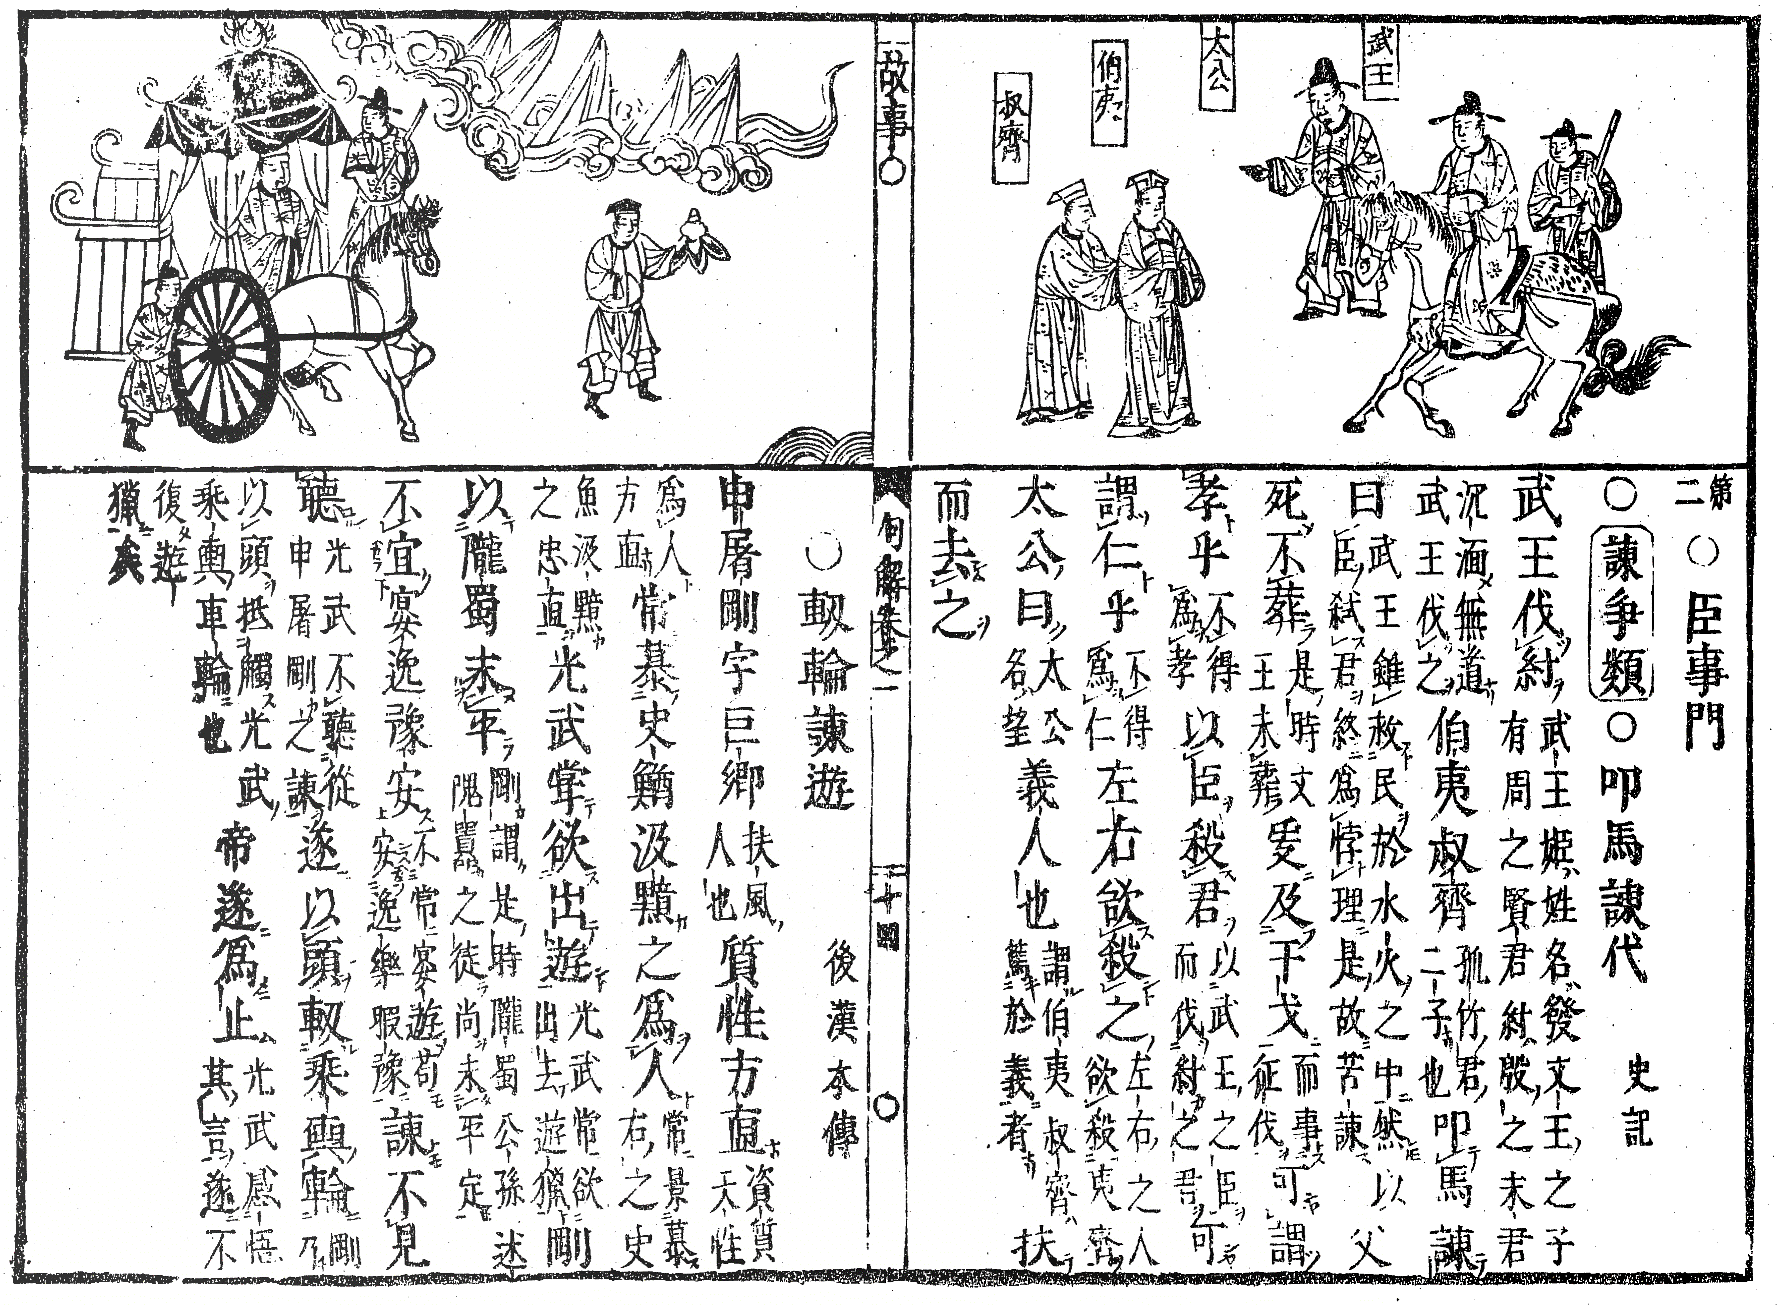 武王
太公
伯夷
叔齊
第二○臣事門
○諫爭類○叩馬諫代 史記
武王伐紂武王姬姓名發文王之子有周之賢君紂殷之末君
沉湎無道武王伐之伯夷叔齊孤竹君二子也叩馬諫
曰武王雖救民於水火之中然以臣弑君終爲悖理是故苦諫父
死不葬是時文王未葬爰及干戈而事征伐可謂
孝乎不得爲孝以臣殺君以武王之臣而伐紂之君可
謂仁乎不得爲仁左右欲殺之左右之人欲殺夷齊
太公曰太公名望義人也謂伯夷叔齊篤於義者扶
而去之
故事○
句解卷之一
二十四
○軔輪諫遊 後漢本傳
申屠剛字巨卿扶風人也質性方直資質天性
爲人方直常慕史鰌汲黯之爲人常景慕右之史
魚汲黯之忠直光武嘗欲出遊光武常欲出去遊獵剛
以隴蜀未平剛謂是時隴蜀公孫述隗囂之徒尚未平定
不宜宴逸豫安不常宴遊苟安逸樂暇豫諫不見
聽光武不聽從申屠剛之諫遂以頭軔乘輿輪剛乃
以頭抵觸光武乘輿車輪也帝遂爲止光武感悟其言遂不
復遊獵矣